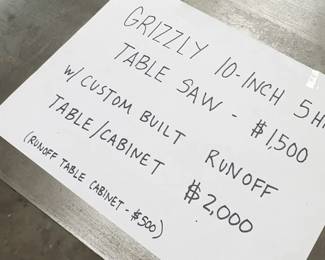 GRIZZLY 10-INCH 5H
TABLE SAW - $1,500
W/ CUSTOM BUILT RUNOFF
TABLE/CABINET $2,000
(RUNOFF TABLE CABINET - $500)